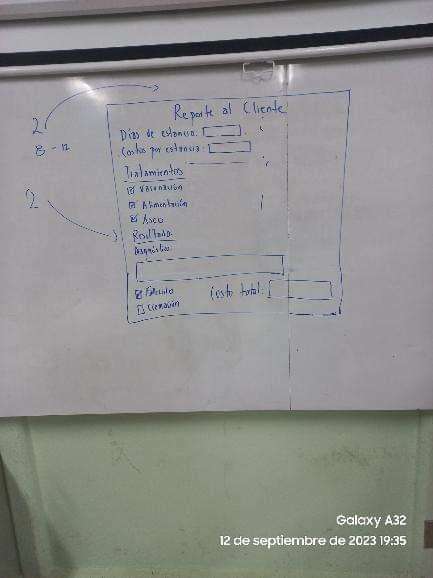 2
8 - 12
2
Reporte al Cliente
Días de estancia:
Costos por estancia:
Tratamientos
Vacunación
Alimentación
Aseo
Resultado
Diagnóstico:
Falleció
Cremación
Costo total:
Galaxy A32
12 de septiembre de 2023 19:35